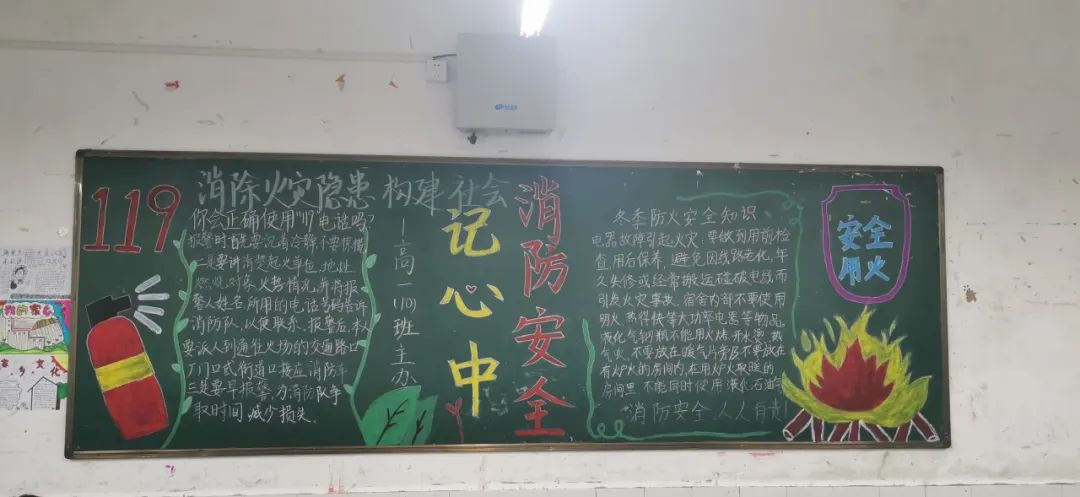 119
消除火灾隐患 构建社会
你会正确使用"119"电话吗?
报警时首先要沉着冷静不要惊慌
二是要讲清楚起火单位、地址
燃烧对象、火势情况,并将报
警人姓名所用的电话号码告诉
消防队,以便联系,报警后,本人
要派人到通往火场的交通路口
厂门口或街道口接应消防车
三是要早报警,为消防队争
取时间,减少损失.
一高一(10)班主办
记心中
消防安全
冬季防火安全知识
电器故障引起火灾,要做到用前检
查,用后保养,避免因线路老化,年
久失修或经常搬运磕碰电线而
引发火灾事故,宿舍内寄不要使用
明火,热得快等大功率电器等物品
液化气钢瓶不能用火烤、开水烫、热
气火,不要放在暖气片旁及不要放在
有炉火的房间内,在用炉火取暖的
房间里,不能同时使用液化石油
"消防安全,人人有责!
安全
用火
我的家
乡文化